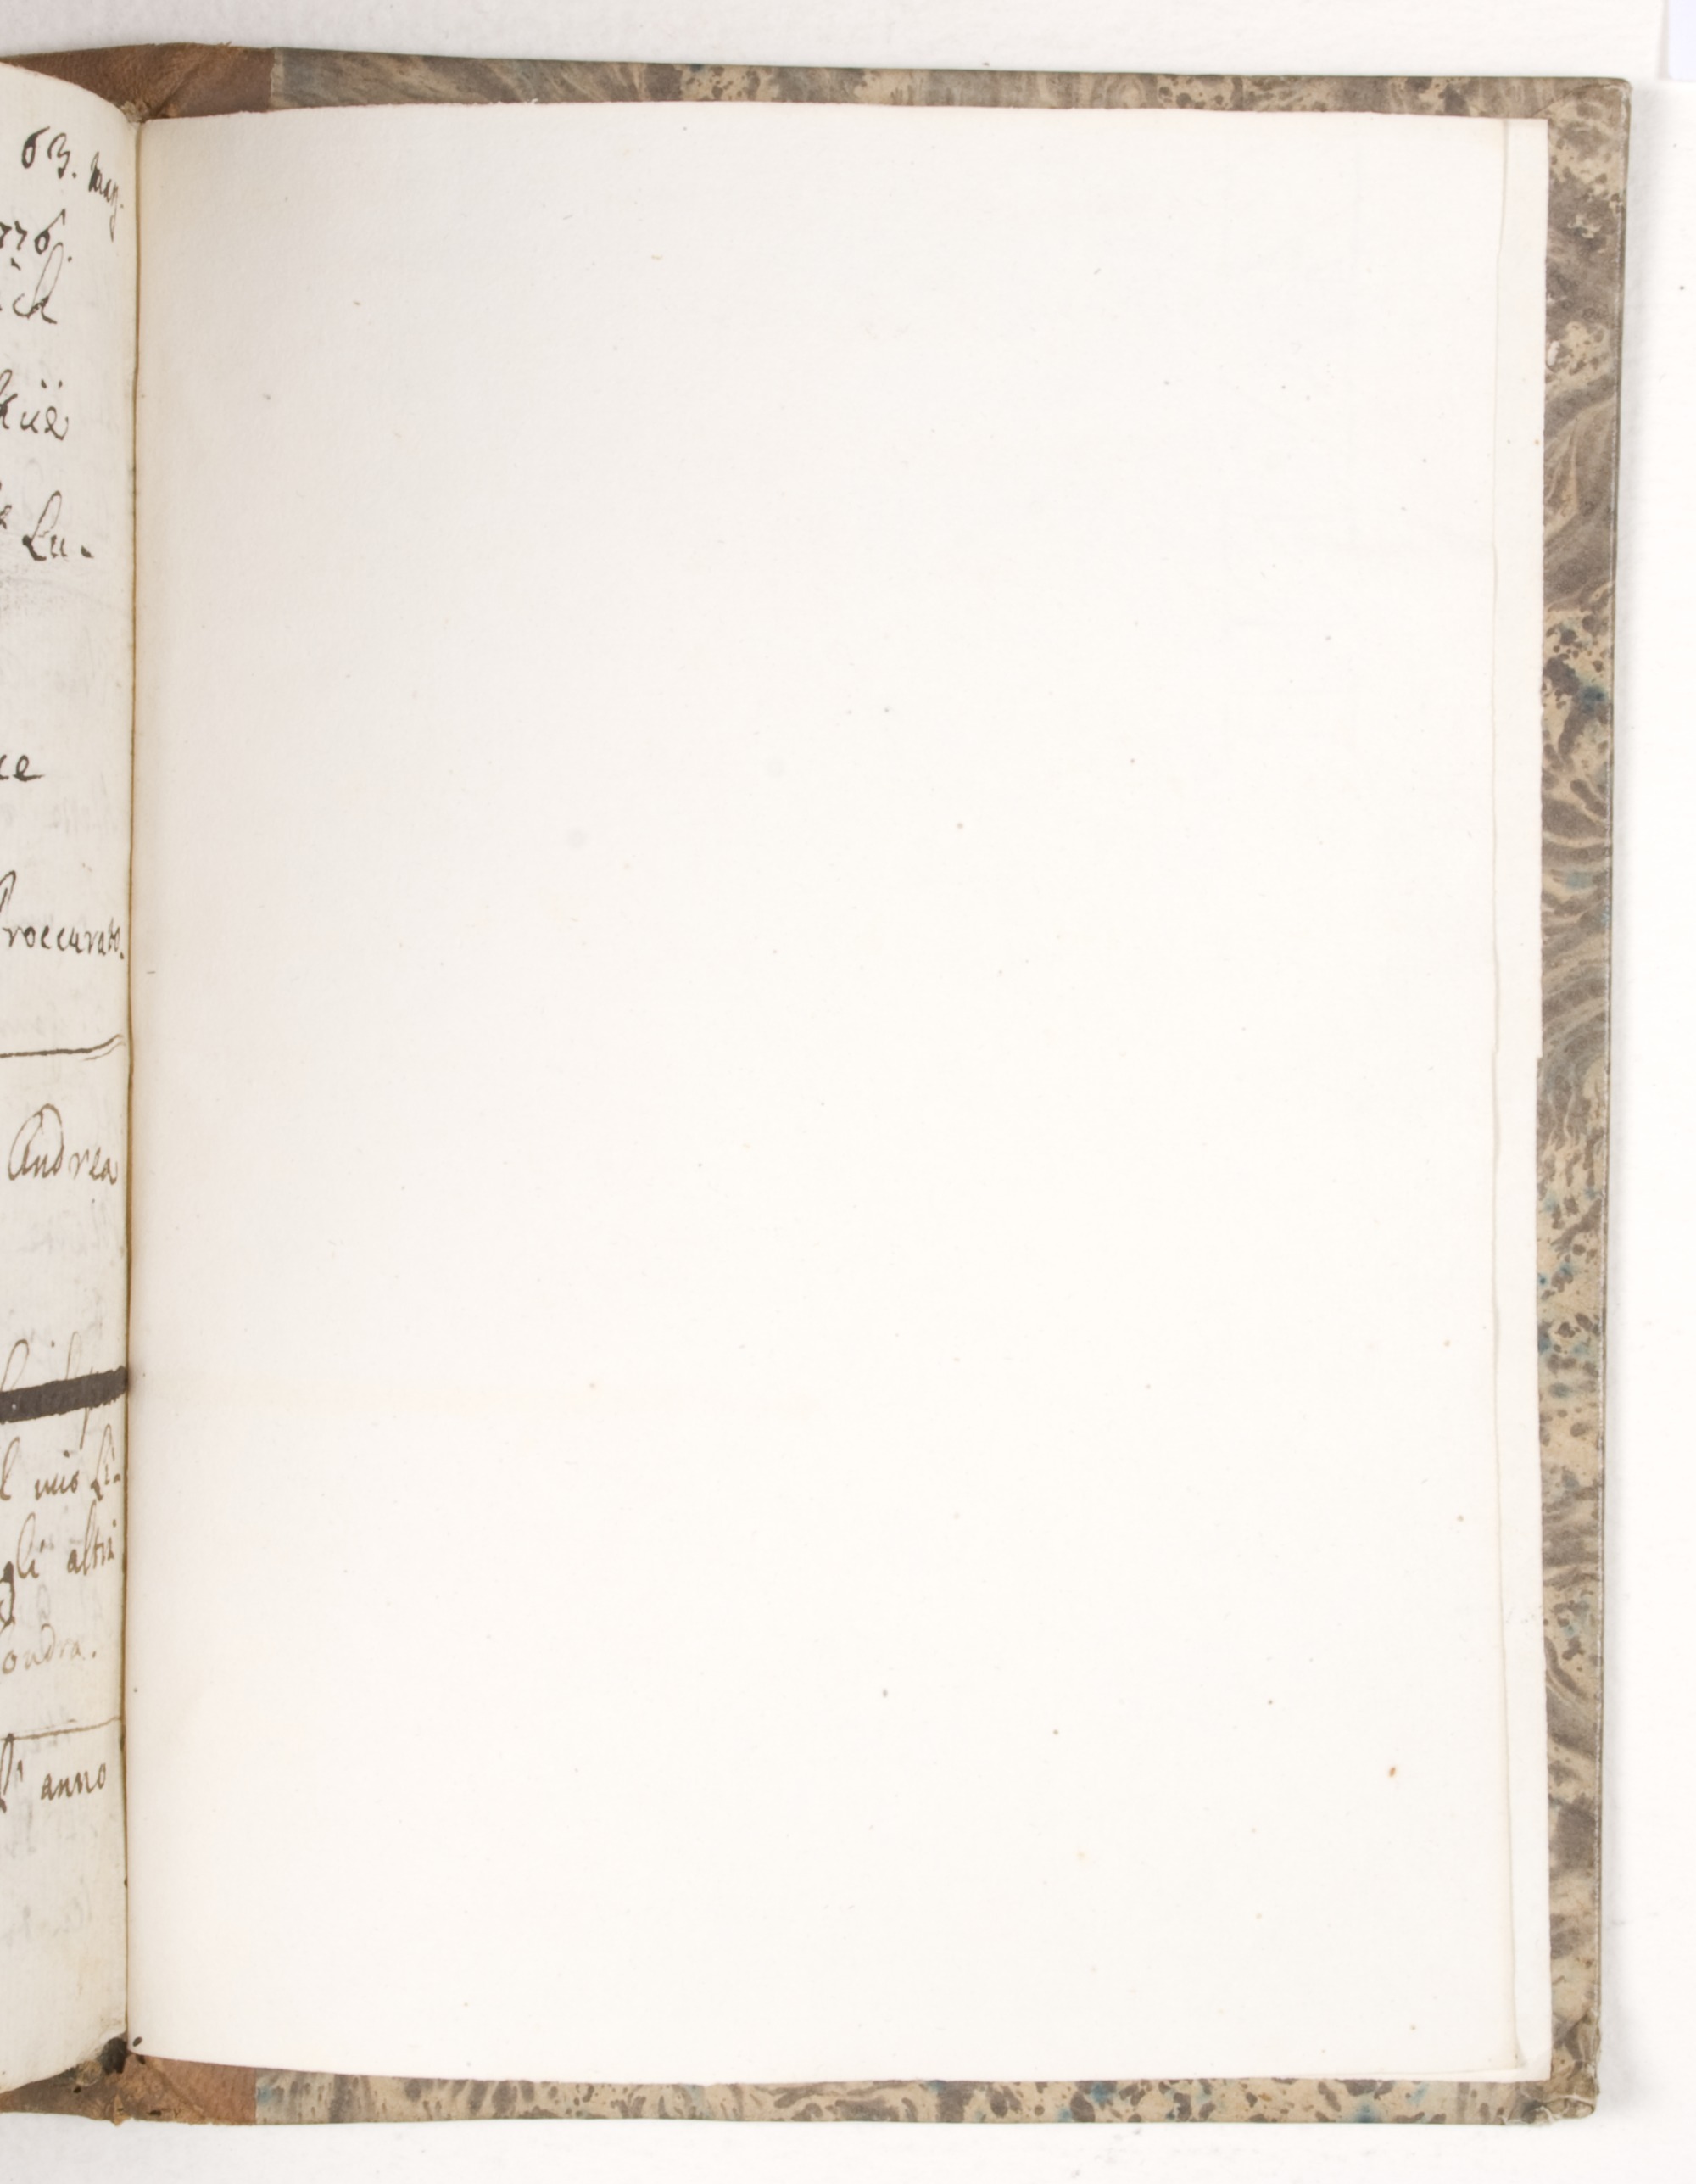 63.
776.
ich
küe
Lu-
ce
roccurato.
Andrea
l mio Li-
gli altri
ondra.
anno